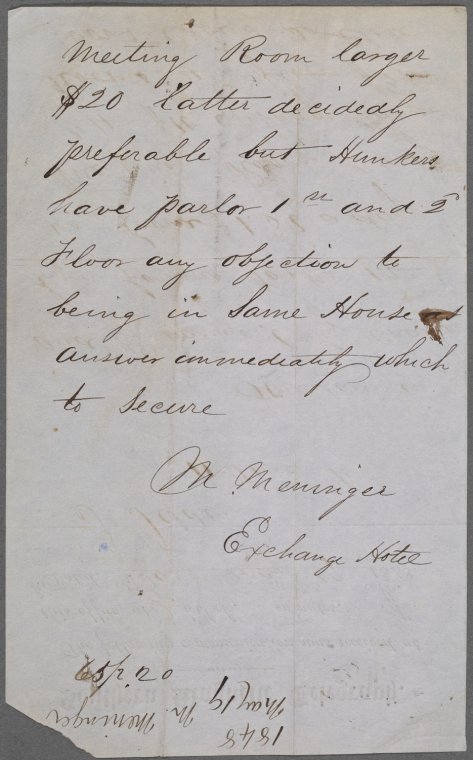 Meeting Room larger
$20 latter decidedly
preferable but Hunkers
have parlor 1st and 2d
Floor any objection to
being in Same House
answer immediately which
to Secure
M. Meninger
Exchange Hotel
20
M. Meninger
May 19
1848